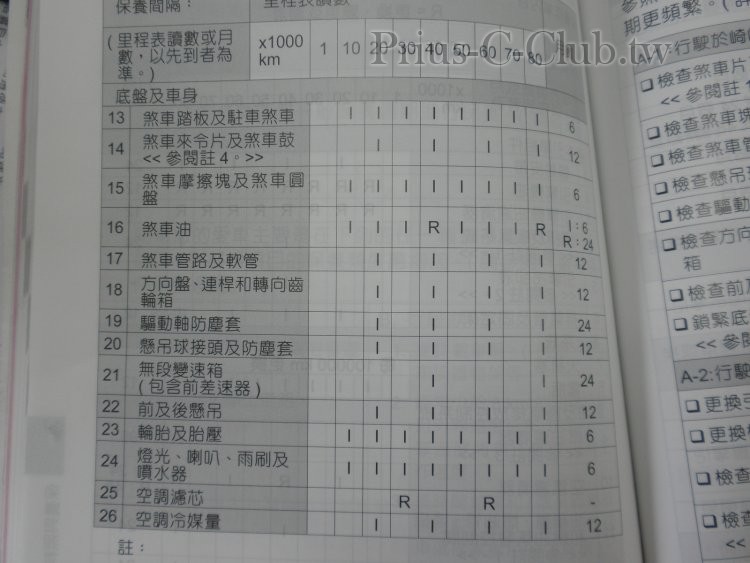 保養間隔： 里程表讀數
(里程表讀數或月數，以先到者為準。) x1000 km 1 10 20 30 40 50 60 70 80
Prius-C-Club.tw
底盤及車身
13 煞車踏板及駐車煞車 I I I I I I I I 6
14 煞車來令片及煞車鼓 I I I I 12
<< 參閱註 4。>>
15 煞車摩擦塊及煞車圓盤 I I I I I I I I 6
16 煞車油 I I I R I I I R I：6
R：24
17 煞車管路及軟管 I I I I 12
18 方向盤、連桿和轉向齒輪箱 I I I I 12
19 驅動軸防塵套 I I I I 24
20 懸吊球接頭及防塵套 I I I I 12
21 無段變速箱 I I 24
(包含前差速器)
22 前及後懸吊 I I I I 12
23 輪胎及胎壓 I I I I I I I I I 6
24 燈光、喇叭、雨刷及噴水器 I I I I I I I I I 6
25 空調濾芯 R R -
26 空調冷媒量 I I I I 12
註：
期更頻繁。(
行駛於崎
檢查煞車片
<< 參閱註
檢查煞車塊
檢查煞車管
檢查懸吊
檢查驅動
檢查方向
箱
檢查前
鎖緊底
<< 參
A-2:行駛
更換
更換
檢查
檢查
<<